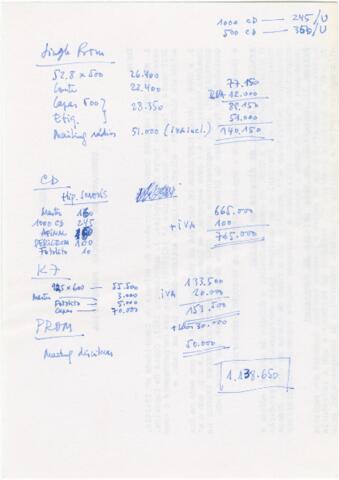 1000 CD — 245/U
500 CD — 350/U
Single Prom
52,8 x 500 26.400
Corte 22.400
Capas 500 } 28.350
Etiq. }
Mailing rádios 51.000 (iva incl.)
77.150
IVA 12.000
89.150
51.000
140.150
CD
Hip. SONOVIS
Master 160
1000 CD 245
100
Fotolito 10
665.000
+ iVA 100
765.000
K7
92,5 x 600 — 55.500
Master — 3.000
Fotolito — 5.000
Capas — 70.000
133.500
iVA 20.000
153.500
30.000
PROM
Mailing discotecas
50.000
1.138.650